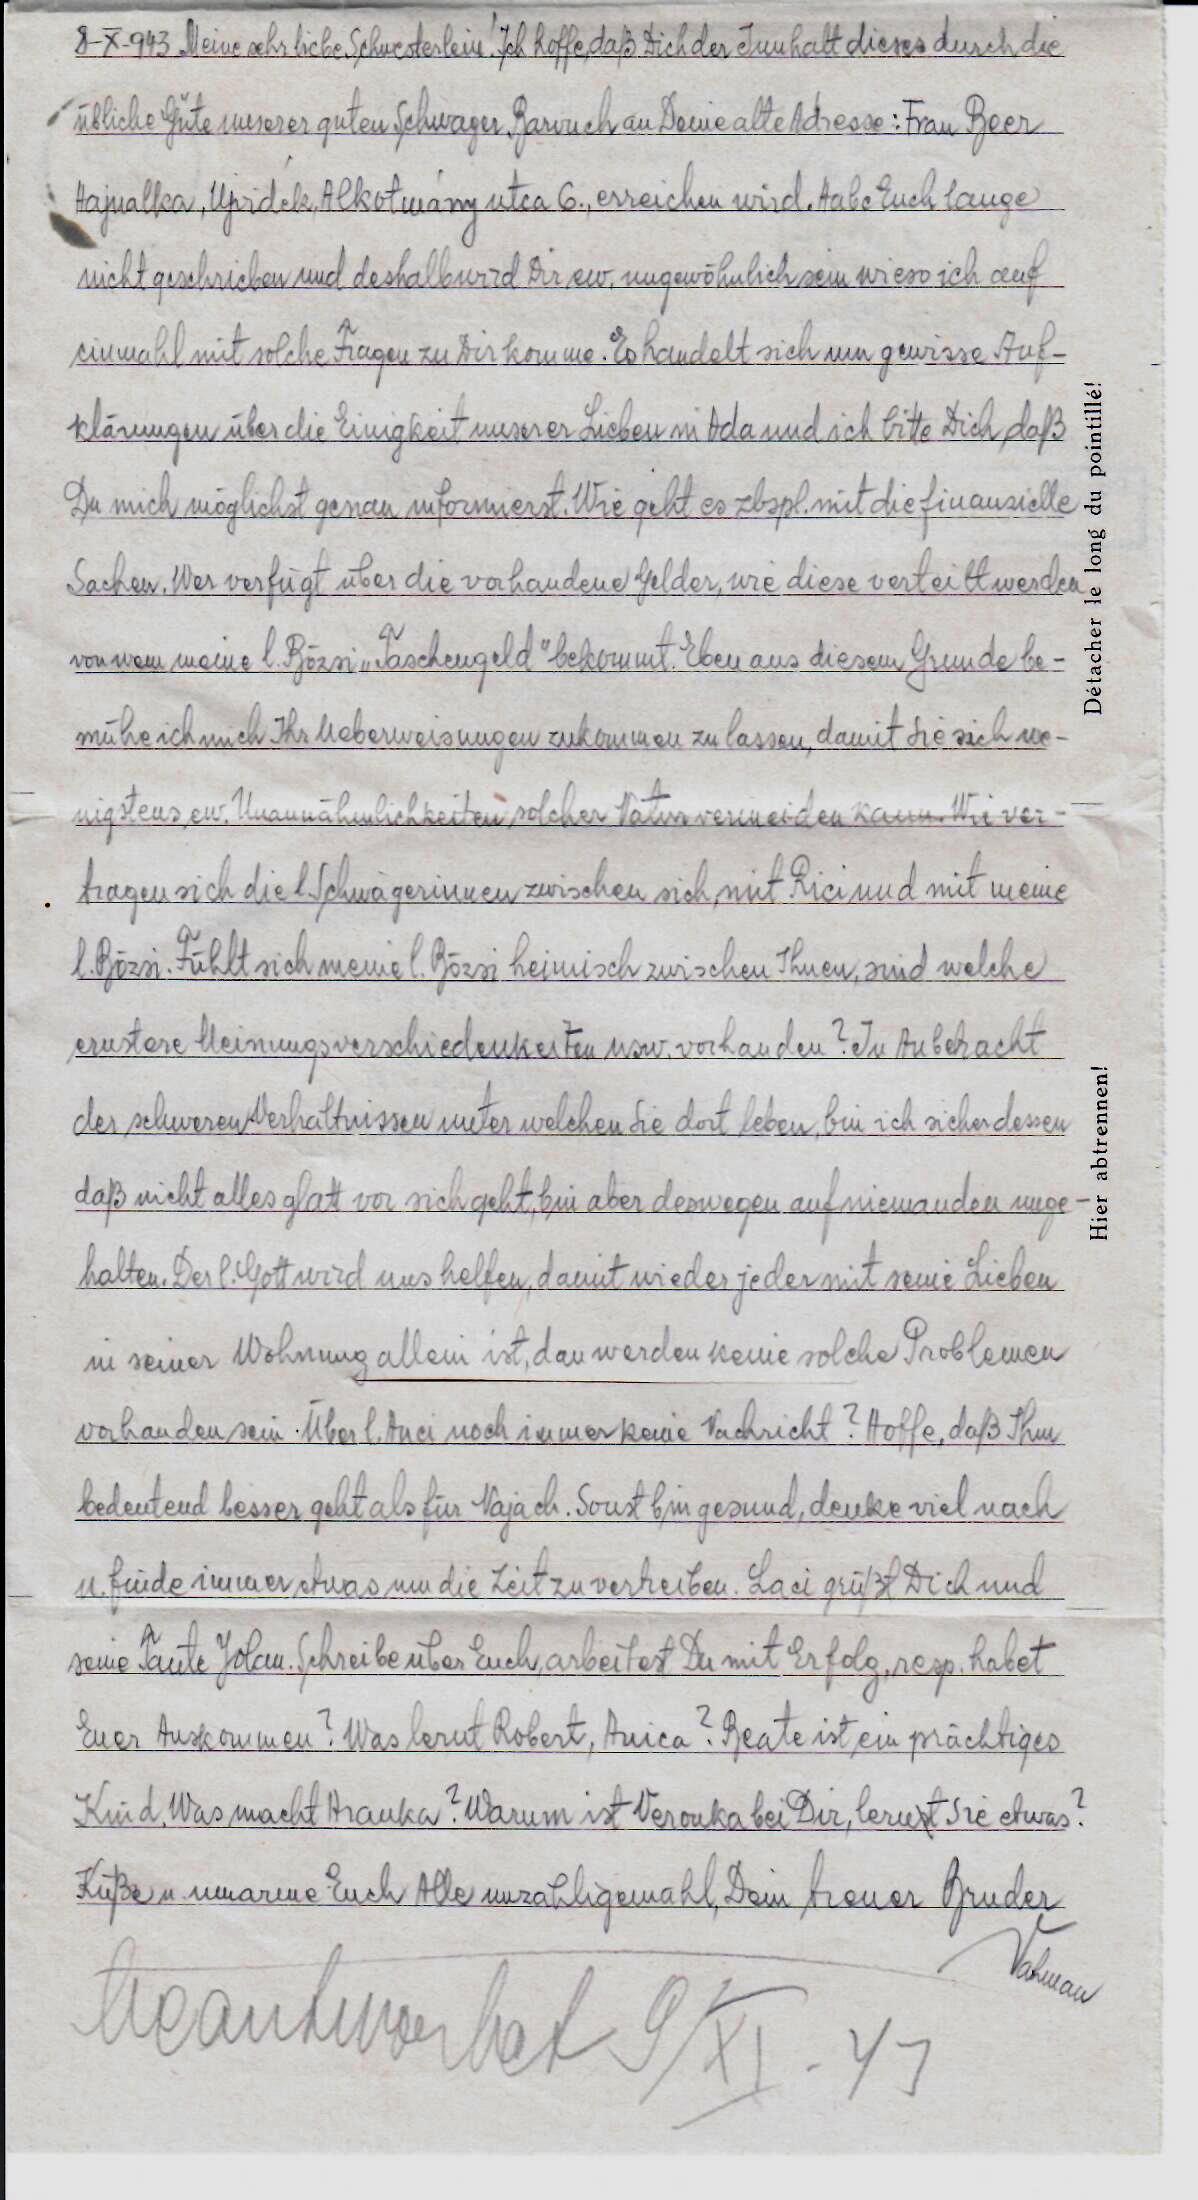 8-X-943 Meine sehr liebe Schwesterlein! Ich hoffe, daß Dich der Innhalt dieses durch die
übliche Güte unserer guten Schwager Baruch an Deine alte Adresse: Frau Beer
Hajnalka, Ujvidék, Alkotmány utca 6., erreichen wird. Habe Euch lange
nicht geschrieben und deshalb wird Dir ew. ungewöhnlich sein wieso ich auf
einmahl mit solche Fragen zu Dir komme. Es handelt sich um gewisse Auf-
klärungen über die Einigkeit unserer Lieben in Ada und ich bitte Dich, daß
Du mich möglichst genau informierst. Wie geht es zbspl. mit die finanzielle
Sachen. Wer verfügt über die vorhandene Gelder, wie diese verteilt werden
von wem meine l. Bözsi „Taschengeld" bekommt. Eben aus diesem Grunde be-
mühe ich mich Ihr Ueberweisungen zukommen zu lassen, damit Sie sich we-
nigstens ew. Unannähmlichkeiten solcher Natur vermeiden kann. Wi ver-
tragen sich die l. Schwägerinnen zwischen sich, mit Rici und mit meine
l. Bözsi. Fühlt sich meine l. Bözsi heimisch zwischen Ihnen, sind welche
ernstere Meinungsverschiedenkeiten usw. vorhanden? In Anbetracht
der schweren Verhältnissen unter welchen Sie dort leben, bin ich sicher dessen
daß nicht alles glatt vor sich geht, bin aber deswegen auf niemanden unge-
halten. Der l. Gott wird uns helfen, damit wieder jeder mit seine Lieben
in seiner Wohnung allein ist, dan werden keine solche Problemen
vorhanden sein. Über l. Anci noch immer keine Nachricht? Hoffe, daß Ihm
bedeutend besser geht als für Vajach. Sonst bin gesund, denke viel nach
u. finde immer etwas um die Zeit zu vertreiben. Laci grüßt Dich und
seine Tante Jolan. Schreibe über Euch, arbeitest Du mit Erfolg, resp. habet
Euer Auskommen? Was lernt Robert, Anica? Beate ist ein prächtiges
Kind. Was macht Aranka? Warum ist Veronka bei Dir, lernt Sie etwas?
Küße u. umarme Euch Alle unzähligemahl, Dein treuer Bruder
Détacher le long du pointillé!
Hier abtrennen!
9/XI-43